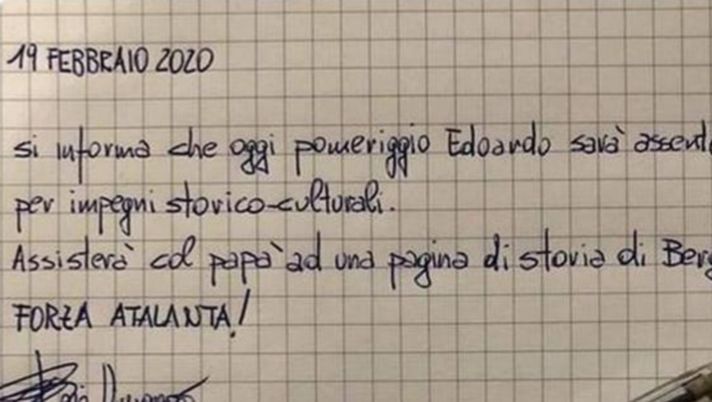 19 FEBBRAIO 2020
si informa che oggi pomeriggio Edoardo sarà
per impegni storico-culturali.
Assisterà col papà ad una pagina di storia di
FORZA ATALANTA!